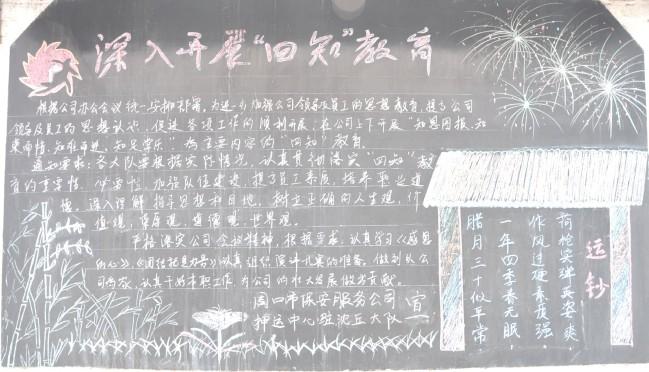 深入开展“四知”教育
根据公司办公会议统一安排部署，为进一步加强公司领导及员工的思想教育，提高公司
领导及员工的思想认识，促进各项工作的顺利开展，在公司上下开展“知恩图报、知
末而悟、知难而进、知足常乐”为主要内容的“四知”教育。
通知要求：各大队要根据实际情况，认真贯彻落实“四知”教
育的重要性、必要性，加强队伍建设，提高员工素质，培养职业道
德，深入理解指导思想和目地，树立正确的人生观，价
值观，荣辱观，道德观，世界观。
严格落实公司会议精神，根据要求，认真学习《感恩
的心》《团结就是力量》认真组织演讲比赛的准备，做到以公
司为家，认真干好本职工作，为公司的壮大发展做出贡献。
周口市保安服务公司
押运中心驻沈丘大队 宣
运钞
荷枪实弹英姿爽，
作风过硬素质强，
一年四季春无眠，
腊月三十似平常，